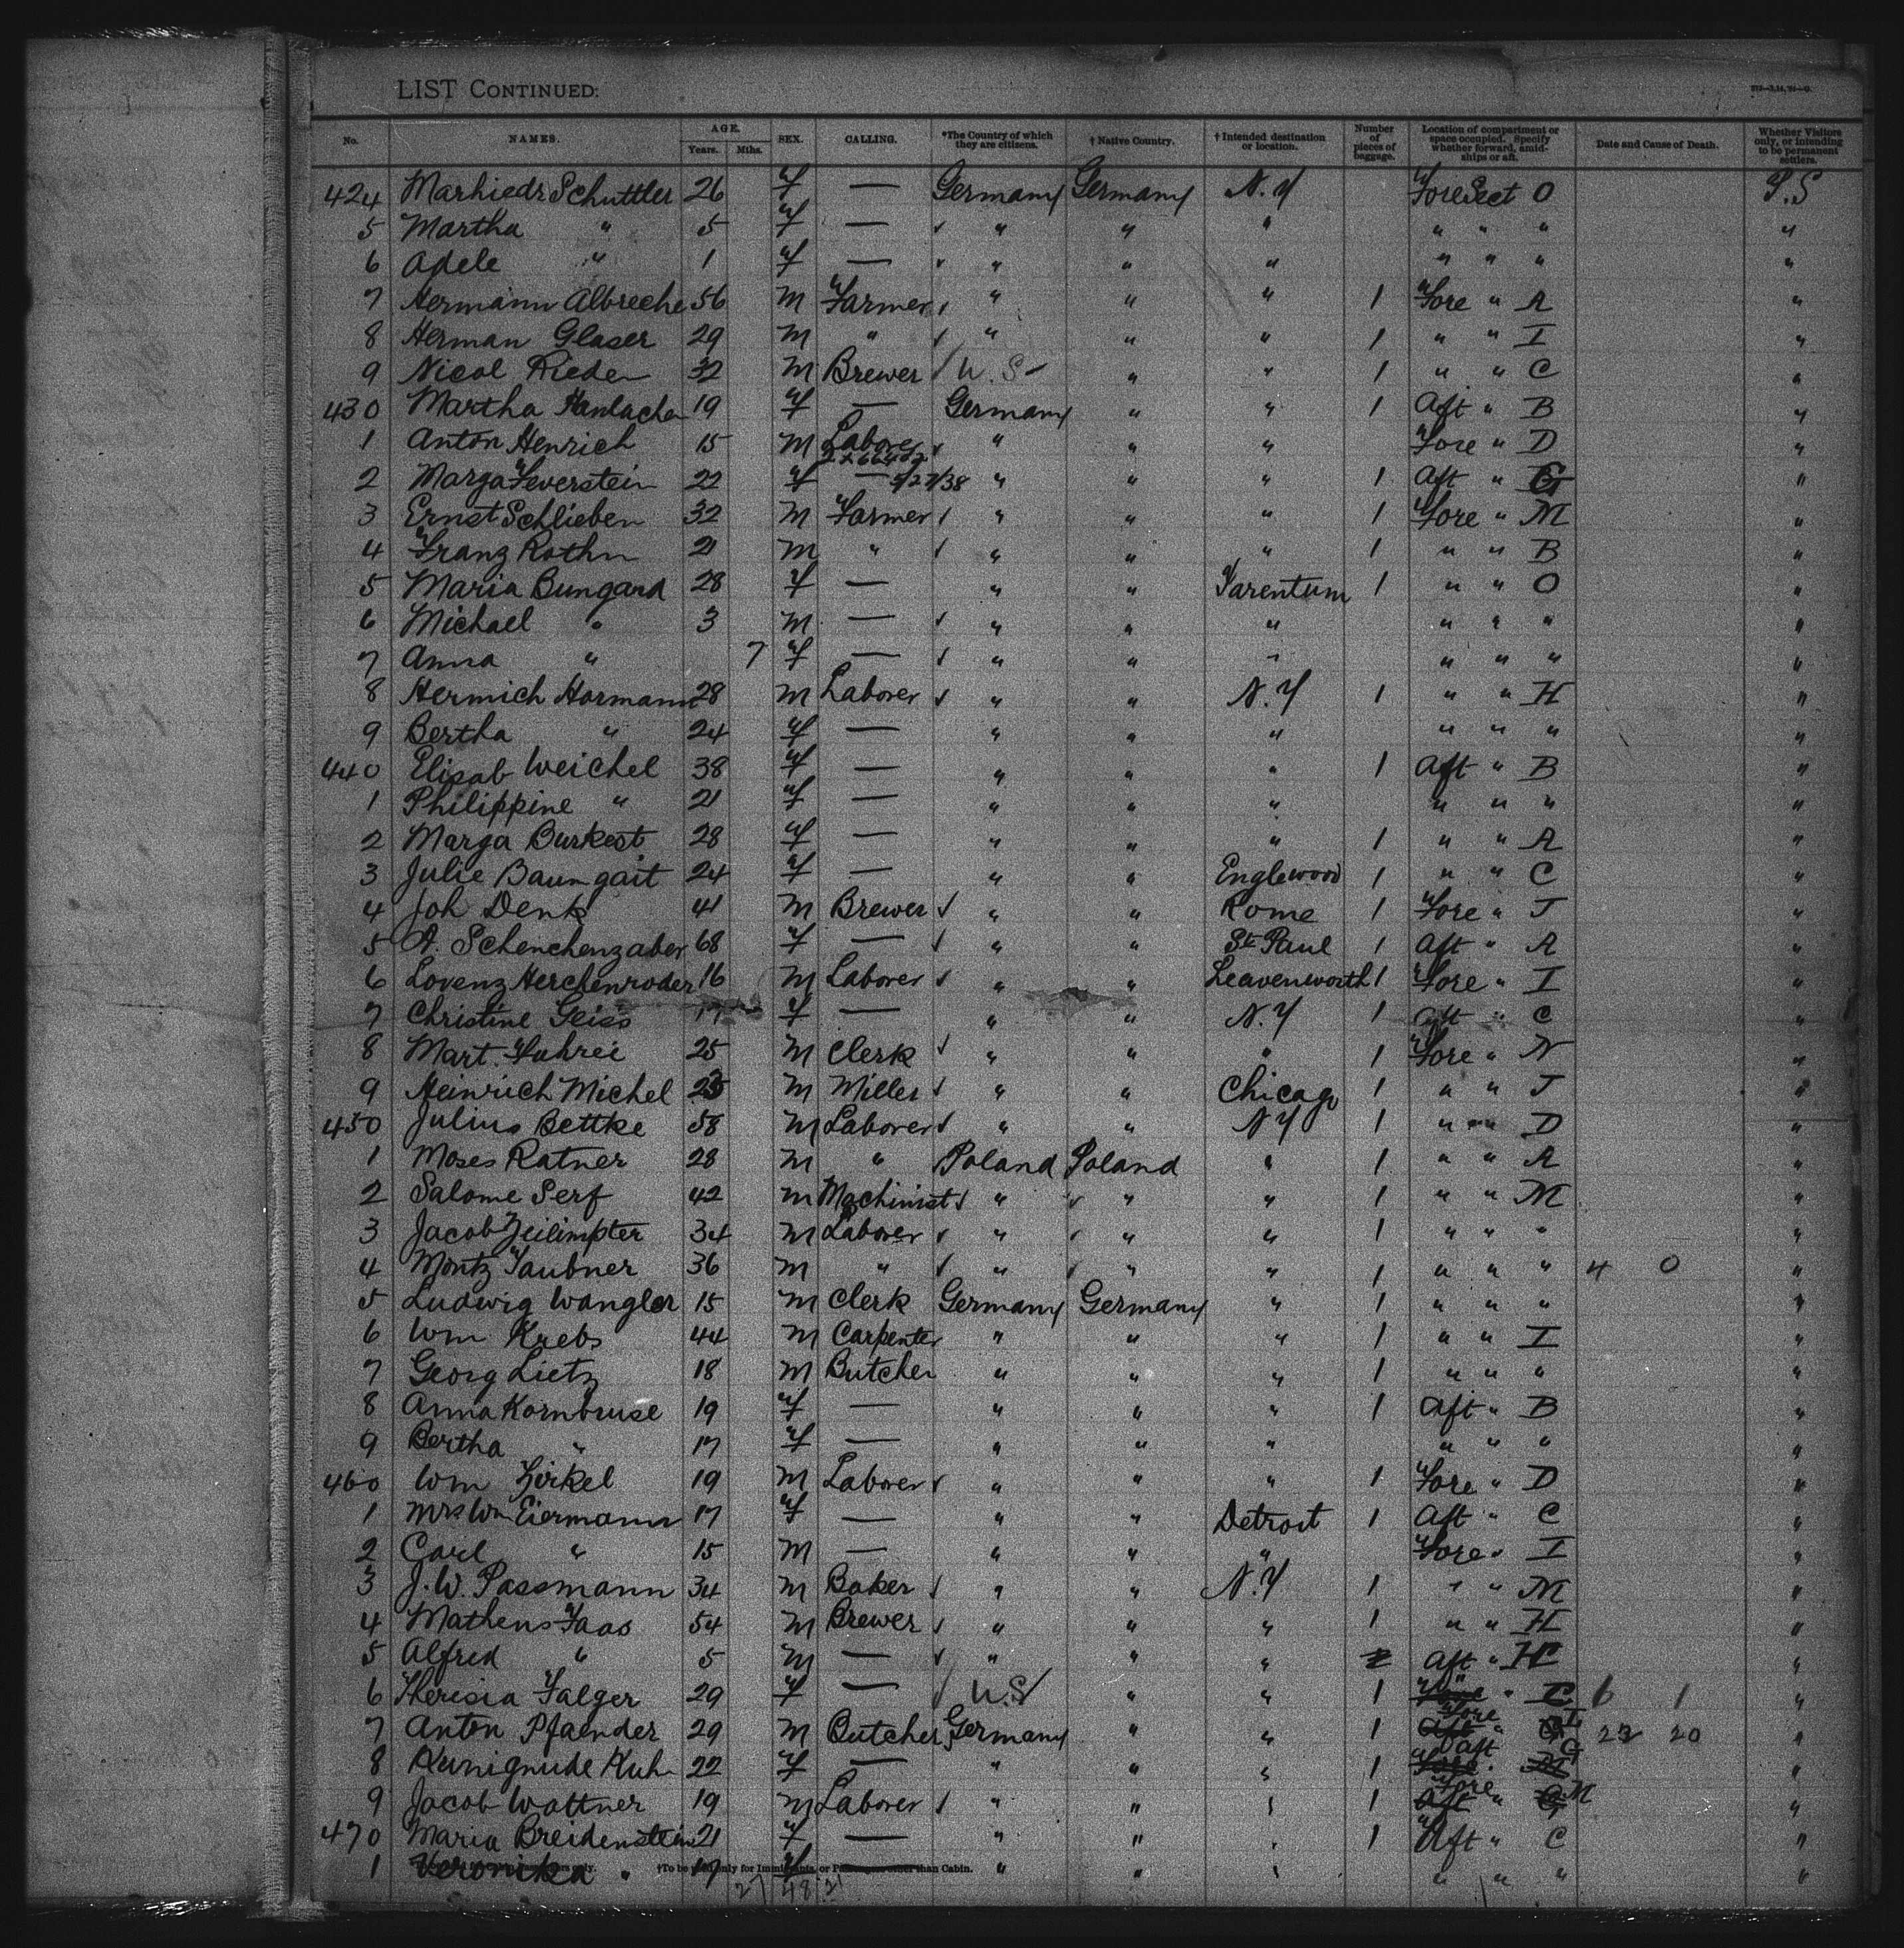 LIST CONTINUED:
No. NAMES. AGE. Years. Mths. SEX. CALLING. *The Country of which they are citizens. † Native Country. † Intended destination or location. Number of pieces of baggage. Location of compartment or space occupied. Specify whether forward, amidships or aft. Date and Cause of Death. Whether Visitors only, or intending to be permanent settlers.
424 Schuttler 26 f — Germany Germany N.Y Fore Sect O
5 Martha " 5 f — " " " " " " "
6 Adele " 1 f — " " " " " " "
7 Hermann Albreche 56 M Farmer " " " 1 Fore " A "
8 Herman Glaser 29 M " " " " 1 " " I "
9 Nicol Rieder 32 M Brewer U.S " " 1 " " C "
430 Martha 19 f — Germany " " 1 Aft " B "
1 Anton Henrich 15 M Laborer " " " Fore " D "
2 Marga Feverstein 22 f — 5/27/38 " " " 1 Aft " G "
3 Ernst Schlieben 32 M Farmer " " " 1 Fore " M "
4 Franz Rothn 21 M " " " " 1 " " B "
5 Maria Bungard 28 f — " " Tarentum 1 " " O "
6 Michael " 3 M — " " " " " " "
7 Anna " 7 f — " " " " " " "
8 Hermich Hormann 28 M Laborer " " N.Y 1 " " H "
9 Bertha " 24 f — " " " " " " "
440 Elisab Weichel 38 f — " " " 1 Aft " B "
1 Philippine " 21 f — " " " " " " "
2 Marga Burkest 28 f — " " " 1 " " A "
3 Julie Baumgait 24 f — " " Englewood 1 " " C "
4 Joh Denk 41 M Brewer " " Rome 1 Fore " J "
5 A. Schenchenzaber 68 f — " " St Paul 1 Aft " A "
6 Lorenz Herchenroder 16 M Laborer " " Leavenworth 1 Fore " I "
7 Christine Geiss 17 f — " " N.Y 1 Aft " C "
8 Mart. 25 M Clerk " " " 1 Fore " N "
9 Heinrich Michel M Miller " " Chicago 1 " " J "
450 Julius Bettke 58 M Laborer " " NY 1 " " D "
1 Moses Ratner 28 M " Poland Poland " 1 " " A "
2 Salome Serf 42 M Machinist " " " 1 " " M "
3 Jacob Zeilimpter 34 M Laborer " " " 1 " " " "
4 Montz Taubner 36 M " " " " 1 " " " 4 0 "
5 Ludwig Wangler 15 M Clerk Germany Germany " 1 " " " "
6 Wm Krebs 44 M Carpenter " " " 1 " " I "
7 Georg Lietz 18 M Butcher " " " 1 " " " "
8 Anna Kornbruse 19 f — " " " 1 Aft " B "
9 Bertha " 17 f — " " " " " " "
460 Wm Zirkel 19 M Laborer " " " 1 Fore " D "
1 Mrs Wm Eiermann 17 f — " " Detroit 1 Aft " C "
2 Carl " 15 M — " " " Fore " I "
3 J.W. Passmann 34 M Baker " " N.Y 1 " " M "
4 Mathens Faas 54 M Brewer " " " 1 " " H "
5 Alfred " 5 M — " " " Aft " "
6 Theresia Falger 29 f — U.S " " 1 6 1 "
7 Anton Pfaender 29 M Butcher Germany " " 1 Fore " 20 "
8 Kuh 22 f — " " " 1 Aft G "
9 Jacob Wattner 19 M Laborer " " " 1 Fore " M "
470 Maria Breidenstein 21 f — " " " 1 Aft " C "
1 Veronika " 17 f — " " " " " " "
†To be only for Immigrants, or Passengers other than Cabin.
27 48 21